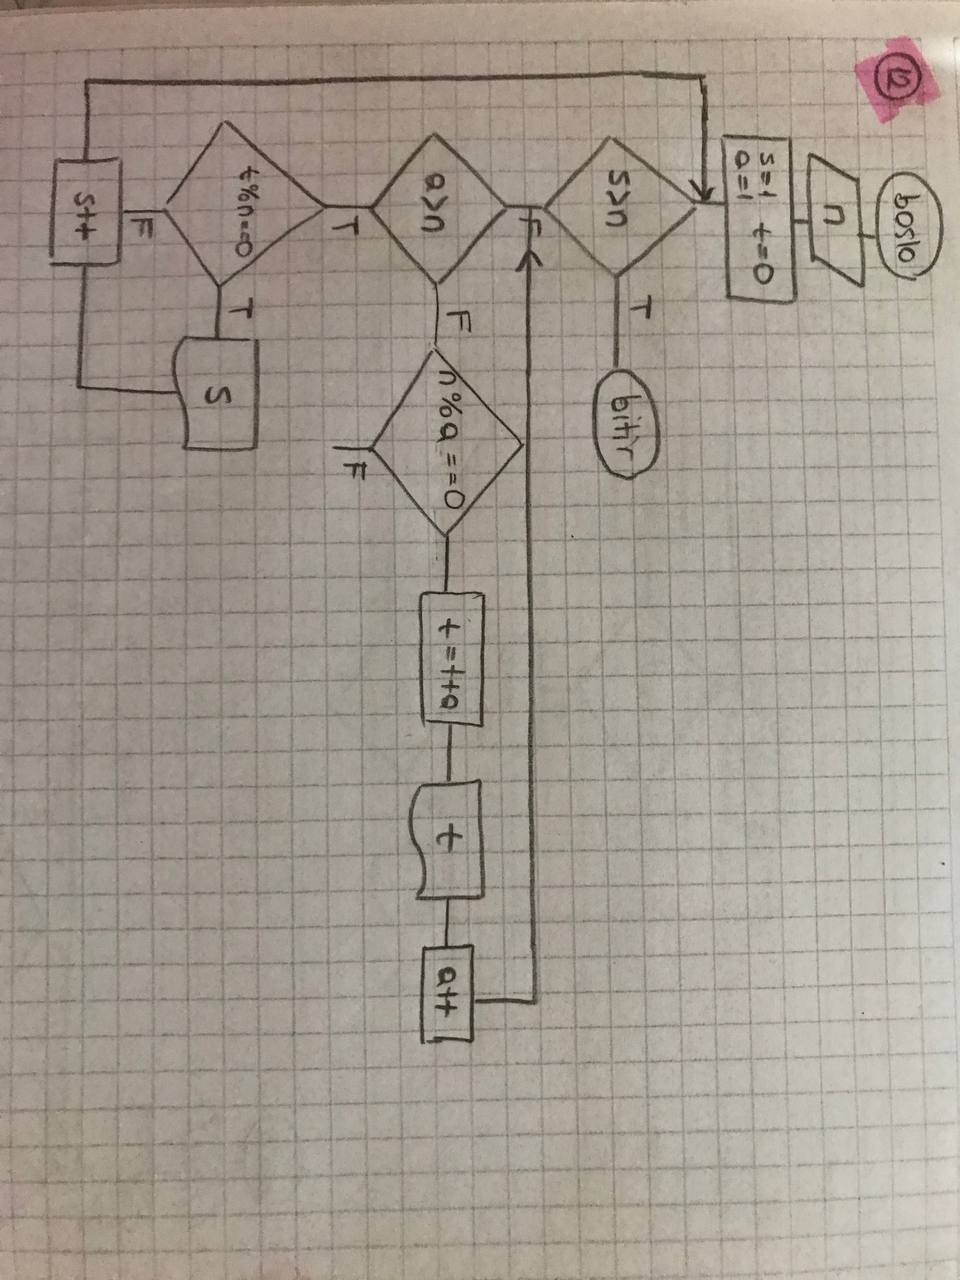 12
bosla
n
s=1 t=0
a=1
s>n
T
bitir
F
a>n
F
n%a==0
t=t+a
t
a++
F
T
t%n==0
T
s
F
s++